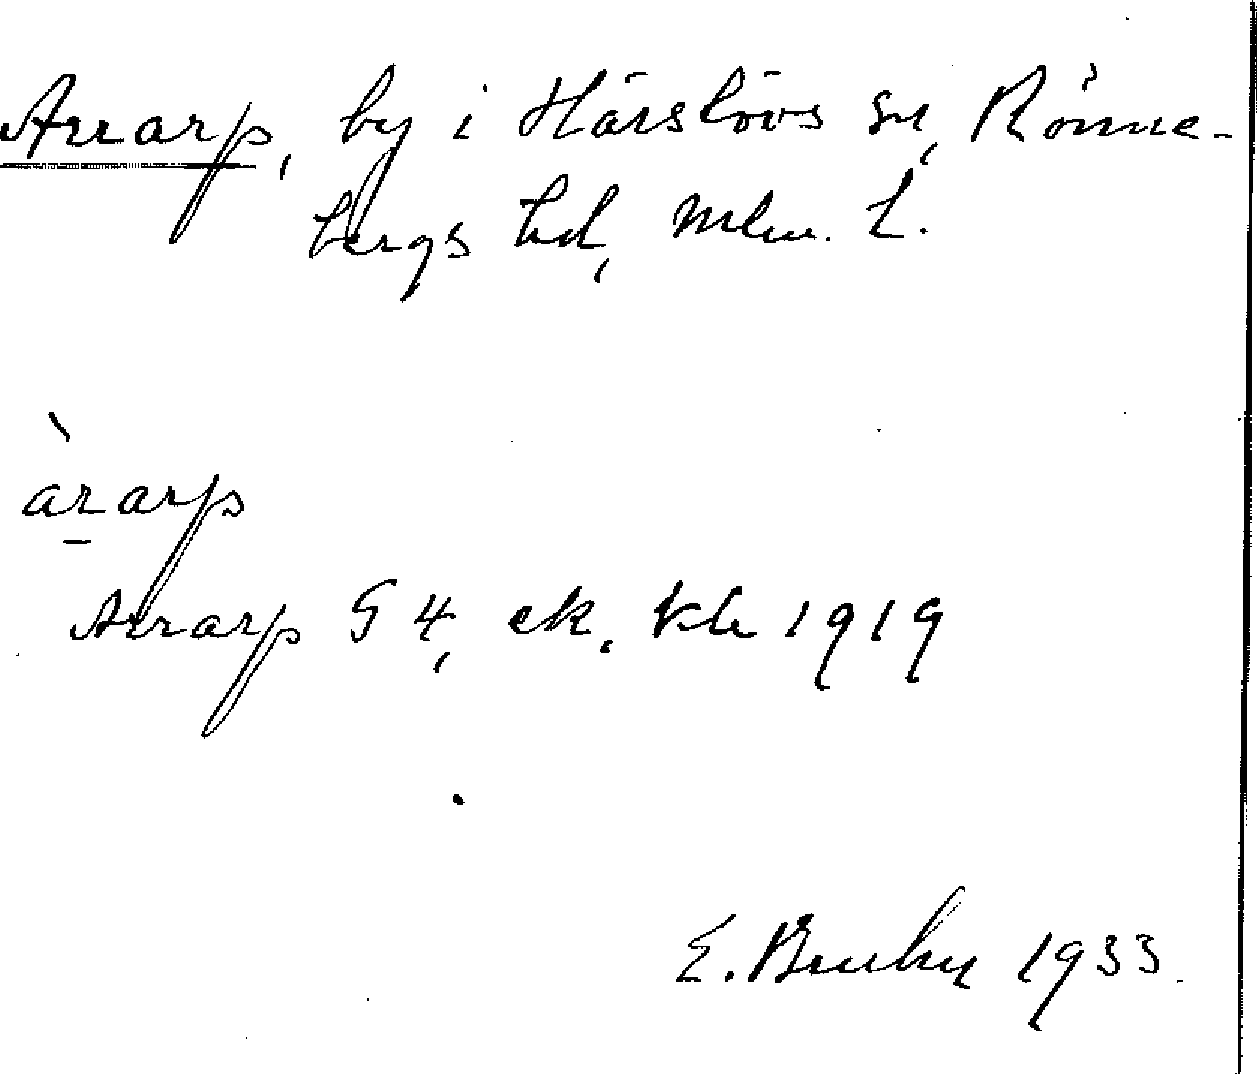 Arrarp, by i Härslövs sn, Rönne-
bergs hd, Mlm. L.
àrarp
Arrarp G 4, ek. kb 1919
E. 1933.